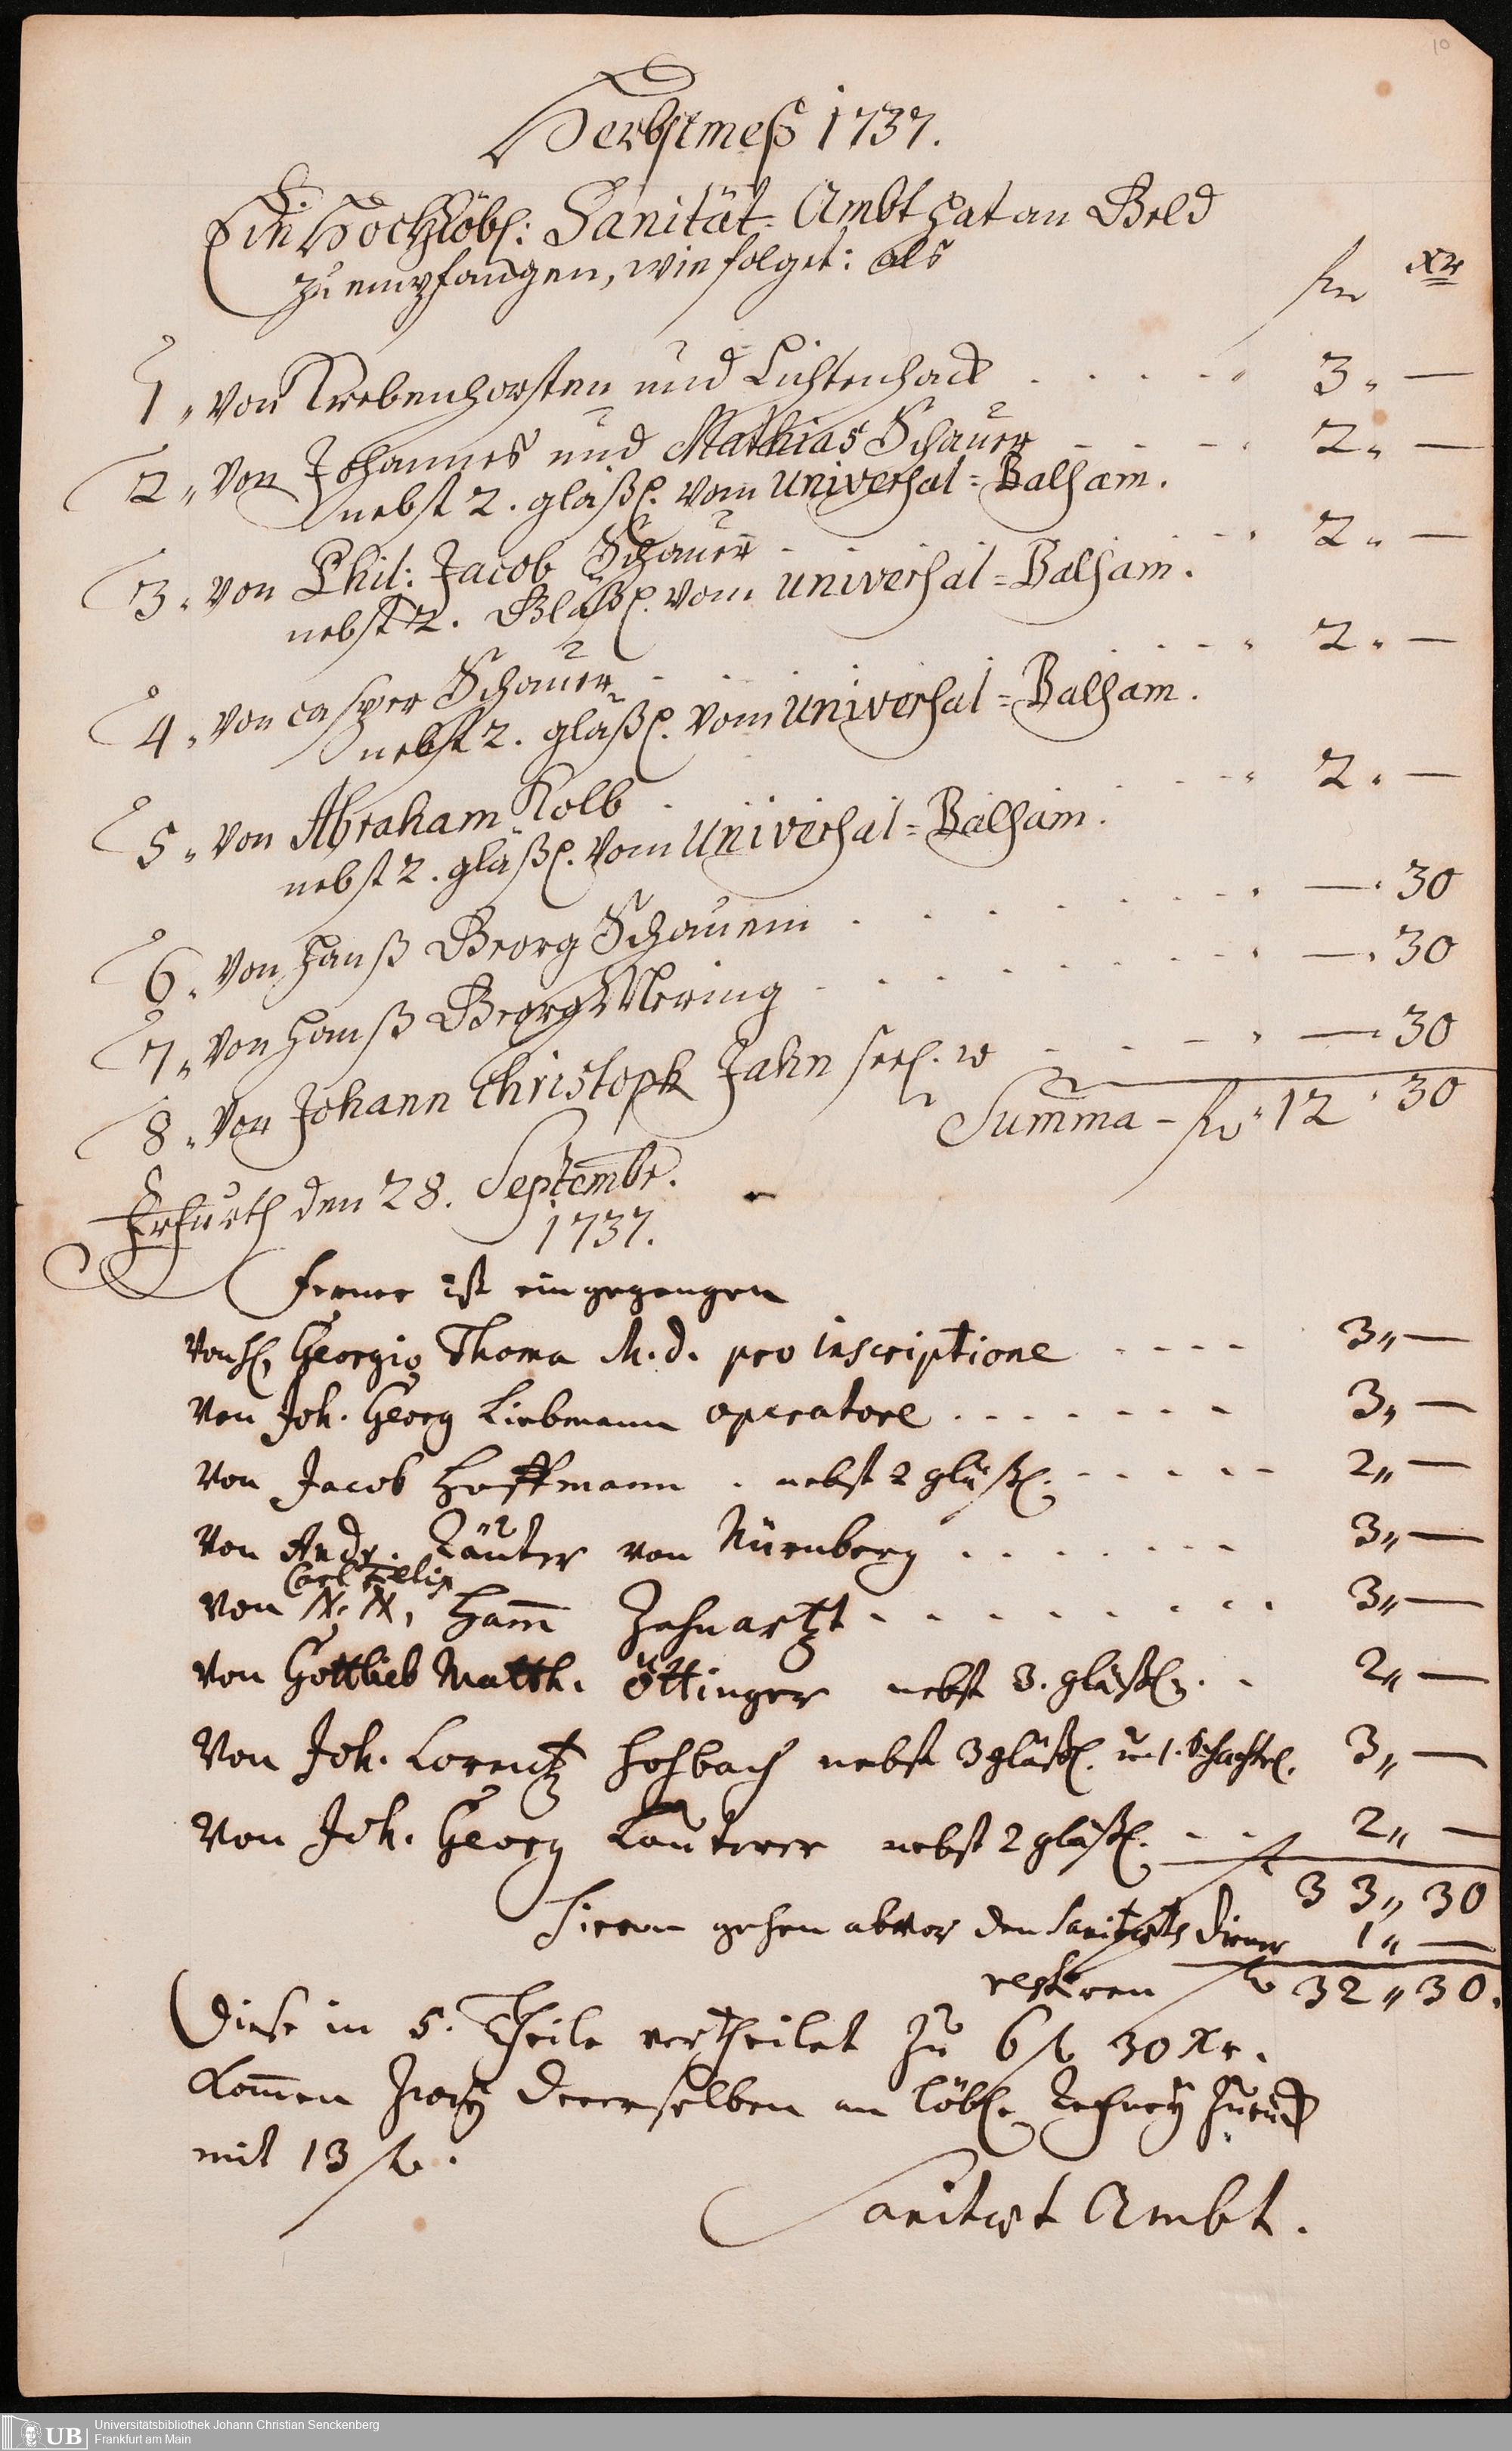 10
Herbstmeß 1737.
Ein Hochlöbl: Sanität-Ambt hat an Geld
zu empfangen, wie folget: als
fl xr
1 „ von Krebenhorsten und Lichtenhach . . . . „ 3 „ —
2 „ von Johannes und Mathias Schauer - - - „ 2 „ —
nebst 2. gläßl. vom universal=Balsam.
3 „ von Phil: Jacob Schauer - - - - „ 2 „ —
nebst 2. Gläßl. vom universal=Balsam.
4 „ von Casper Schauer - - - - „ 2 „ —
nebst 2. gläßl. vom universal=Balsam.
5 „ von Abraham Kolb . . - - „ 2 „ —
nebst 2. gläßl. vom universal=Balsam.
6 „ von Hanß Georg Schauem . . . . . „ — „ 30
7 „ von Hanß Georg Mering . . . . . „ — „ 30
8 „ von Johann Christoph Jahn seel. w - - - „ — „ 30
Summa - fl „ 12 „ 30
Erfurth den 28. Septembr.
1737.
Ferner ist eingegangen
von H. Georgio Thoma M. d. pro inscriptione - - - - 3 „ —
von Joh. Georg Liebmann operatore . - - - - - 3 „ —
von Jacob Hoffmann . nebst 2 gläßl. - - - - - 2 „ —
von Andr. Läuter von Nürnberg . . . . . - - 3 „ —
Carl Felix
von N. N. Ham̄ Zahnartzt - - - - - - 3 „ —
von Gottlieb Matth. Öttinger nebst 3. gläßl. - - 2 „ —
von Joh. Lorentz Hohbach nebst 3 gläßl. u. 1. Schachtel. 3 „ —
von Joh. Georg Lauterer nebst 2 gläßl. - - - 2 „ —
fl 33 „ 30
Hievon gehen ab vor den Sanitæts Diener 1 „ —
restiren fl 32 „ 30.
Diese in 5. Theile vertheilet zu 6 fl 30 xr.
kom̄en zwey derer selben an löbl. Rechney zurück
mit 13 fl.
Sanitæt Ambt.
UB
Universitätsbibliothek Johann Christian Senckenberg
Frankfurt am Main